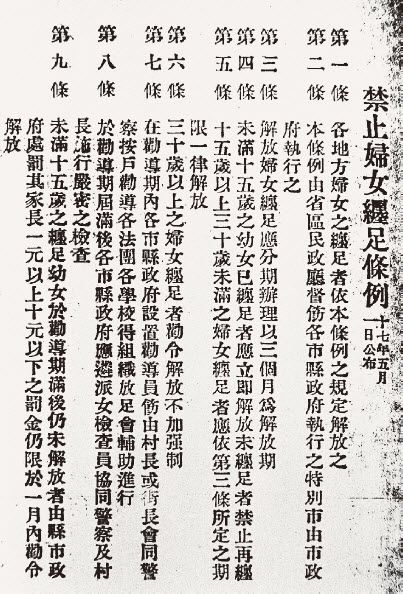 禁止婦女纏足條例
十七年五月
日公布
第一條 各地方婦女之纏足者依本條例之規定解放之
第二條 本條例由省區民政廳督飭各市縣政府執行之特別市由市政
府執行之
第三條 解放婦女纏足應分期辦理以三個月爲解放期
第四條 未滿十五歲之幼女已纏足者應立即解放未纏足者禁止再纏
第五條 十五歲以上三十歲未滿之婦女纏足者應依第三條所定之期
限一律解放
第六條 三十歲以上之婦女纏足者勸令解放不加强制
第七條 在勸導期內各市縣政府設置勸導員飭由村長或街長會同警
察按戶勸導各法團各學校得組織放足會輔助進行
第八條 於勸導期屆滿後各市縣政府應遴派女檢查員協同警察及村
長施行嚴密之檢查
第九條 未滿十五歲之纏足幼女於勸導期滿後仍未解放者由縣市政
府處罰其家長一元以上十元以下之罰金仍限於一月內勸令
解放